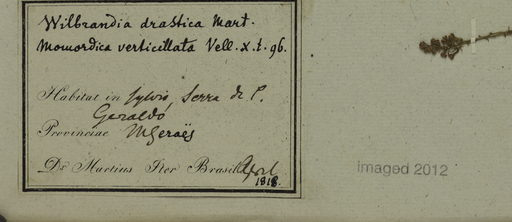 Wilbrandia drastica Mart.
Momordica verticillata Vell. X. t. 96.
Habitat in sylvis, Serra de S.
Geraldo
Provinciae MGeraës
Dr. Martius Iter Brasil.
1818.
imaged 2012